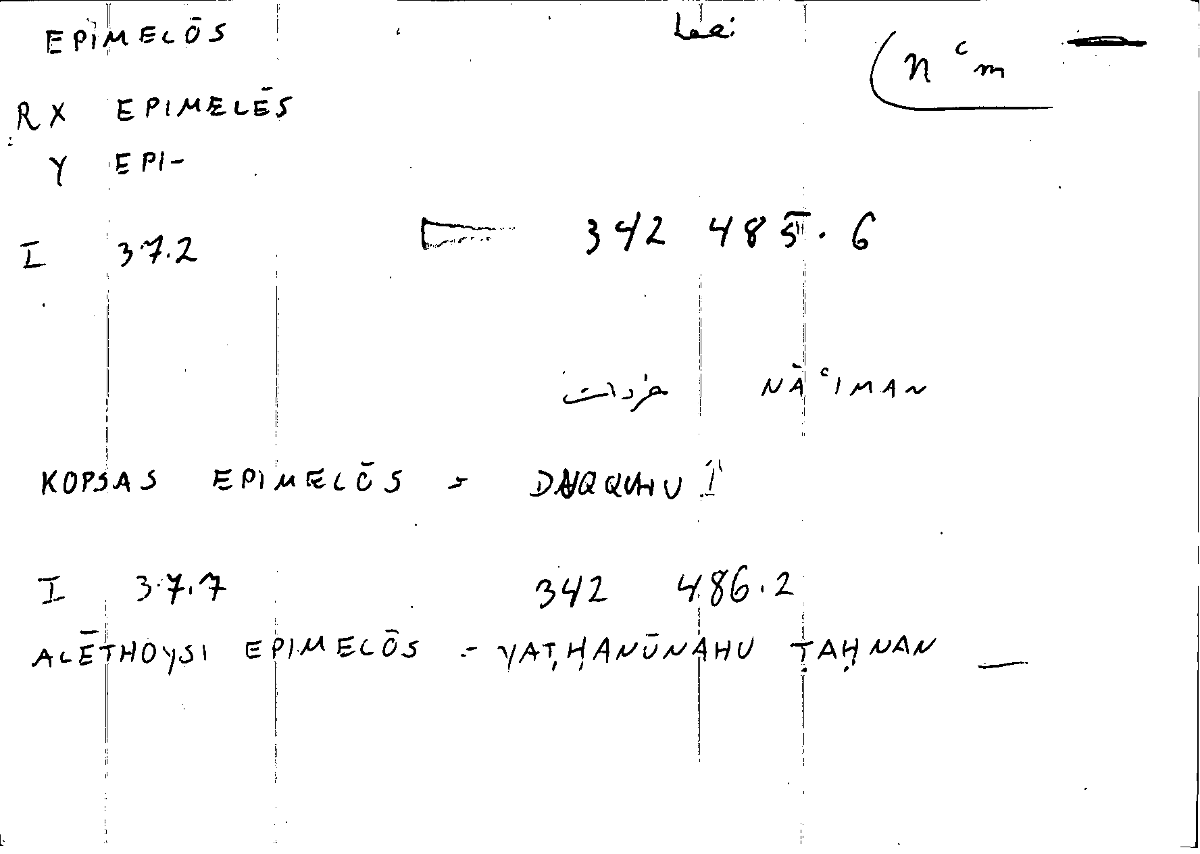 EPIMELŌS نعما n ͨ m
RX EPIMELĒS
Y EPI-
I 37.2 342 485.6
NĀ ͨIMAN
KOPSAS EPIMELŌS = DAQQUHU
I 37.7 342 486.2
ALĒTHOYSI EPIMELŌS = YAṬḤANŪNAHU ṬAḤNAN —